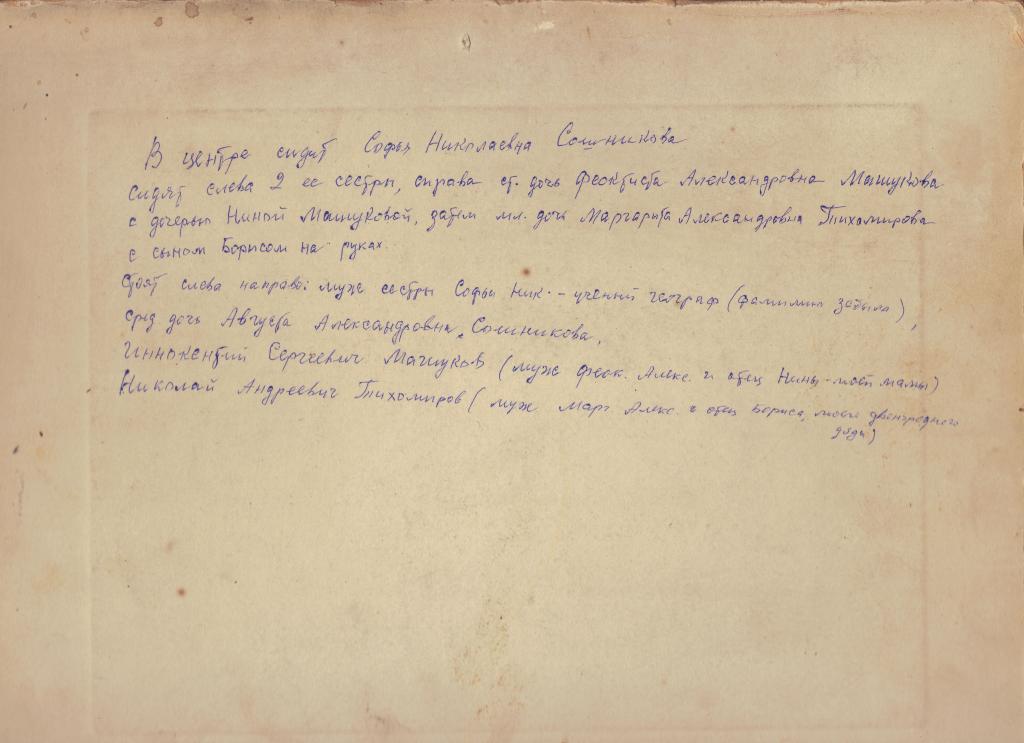 В центре сидит Софья Николаевна Сошникова
Сидят слева 2 ее сестры, справа ст. дочь Феоктиста Александровна Машукова
с дочерью Ниной Машуковой, затем мл. дочь Маргарита Александровна Тихомирова
с сыном Борисом на руках.
Стоят слева направо: муж сестры Софьи Ник. - учений географ (фамилию забыла),
сред дочь Августа Александровна Сошникова,
Иннокентий Сергеевич Машуков (муж Феок. Алекс. и отец Нины - моей мамы)
Николай Андреевич Тихомиров (муж Марг. Алекс. и отец Бориса, моего двоюродного
дяди)